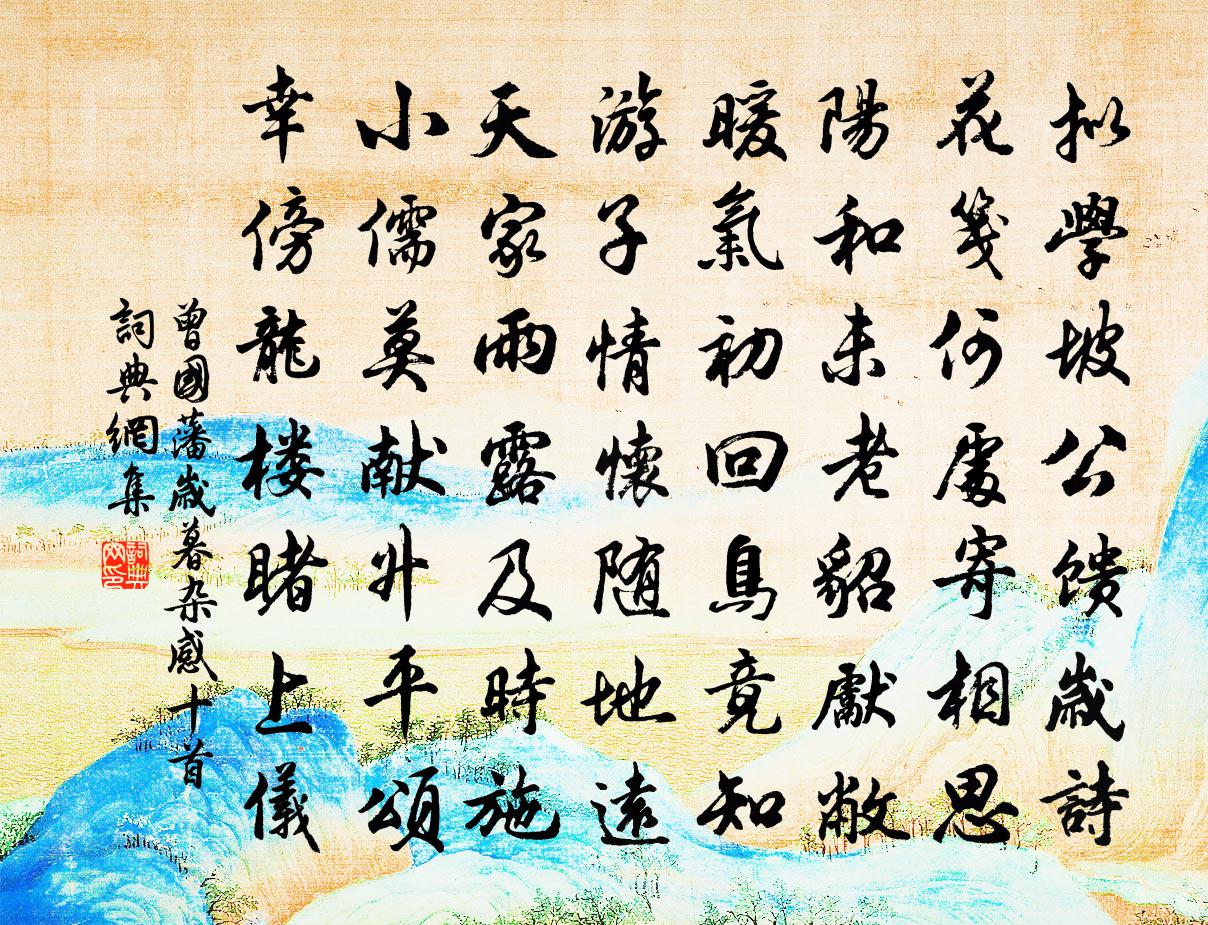 拟學坡公馈歲詩
花箋何處寄相思
陽和未老貂獻敝
暖氣初回鳥竟知
游子情懷随地遠
天家雨露及時施
小儒莫献升平頌
幸傍龍楼睹上儀
曾國藩歲暮杂感十首
詞典網集